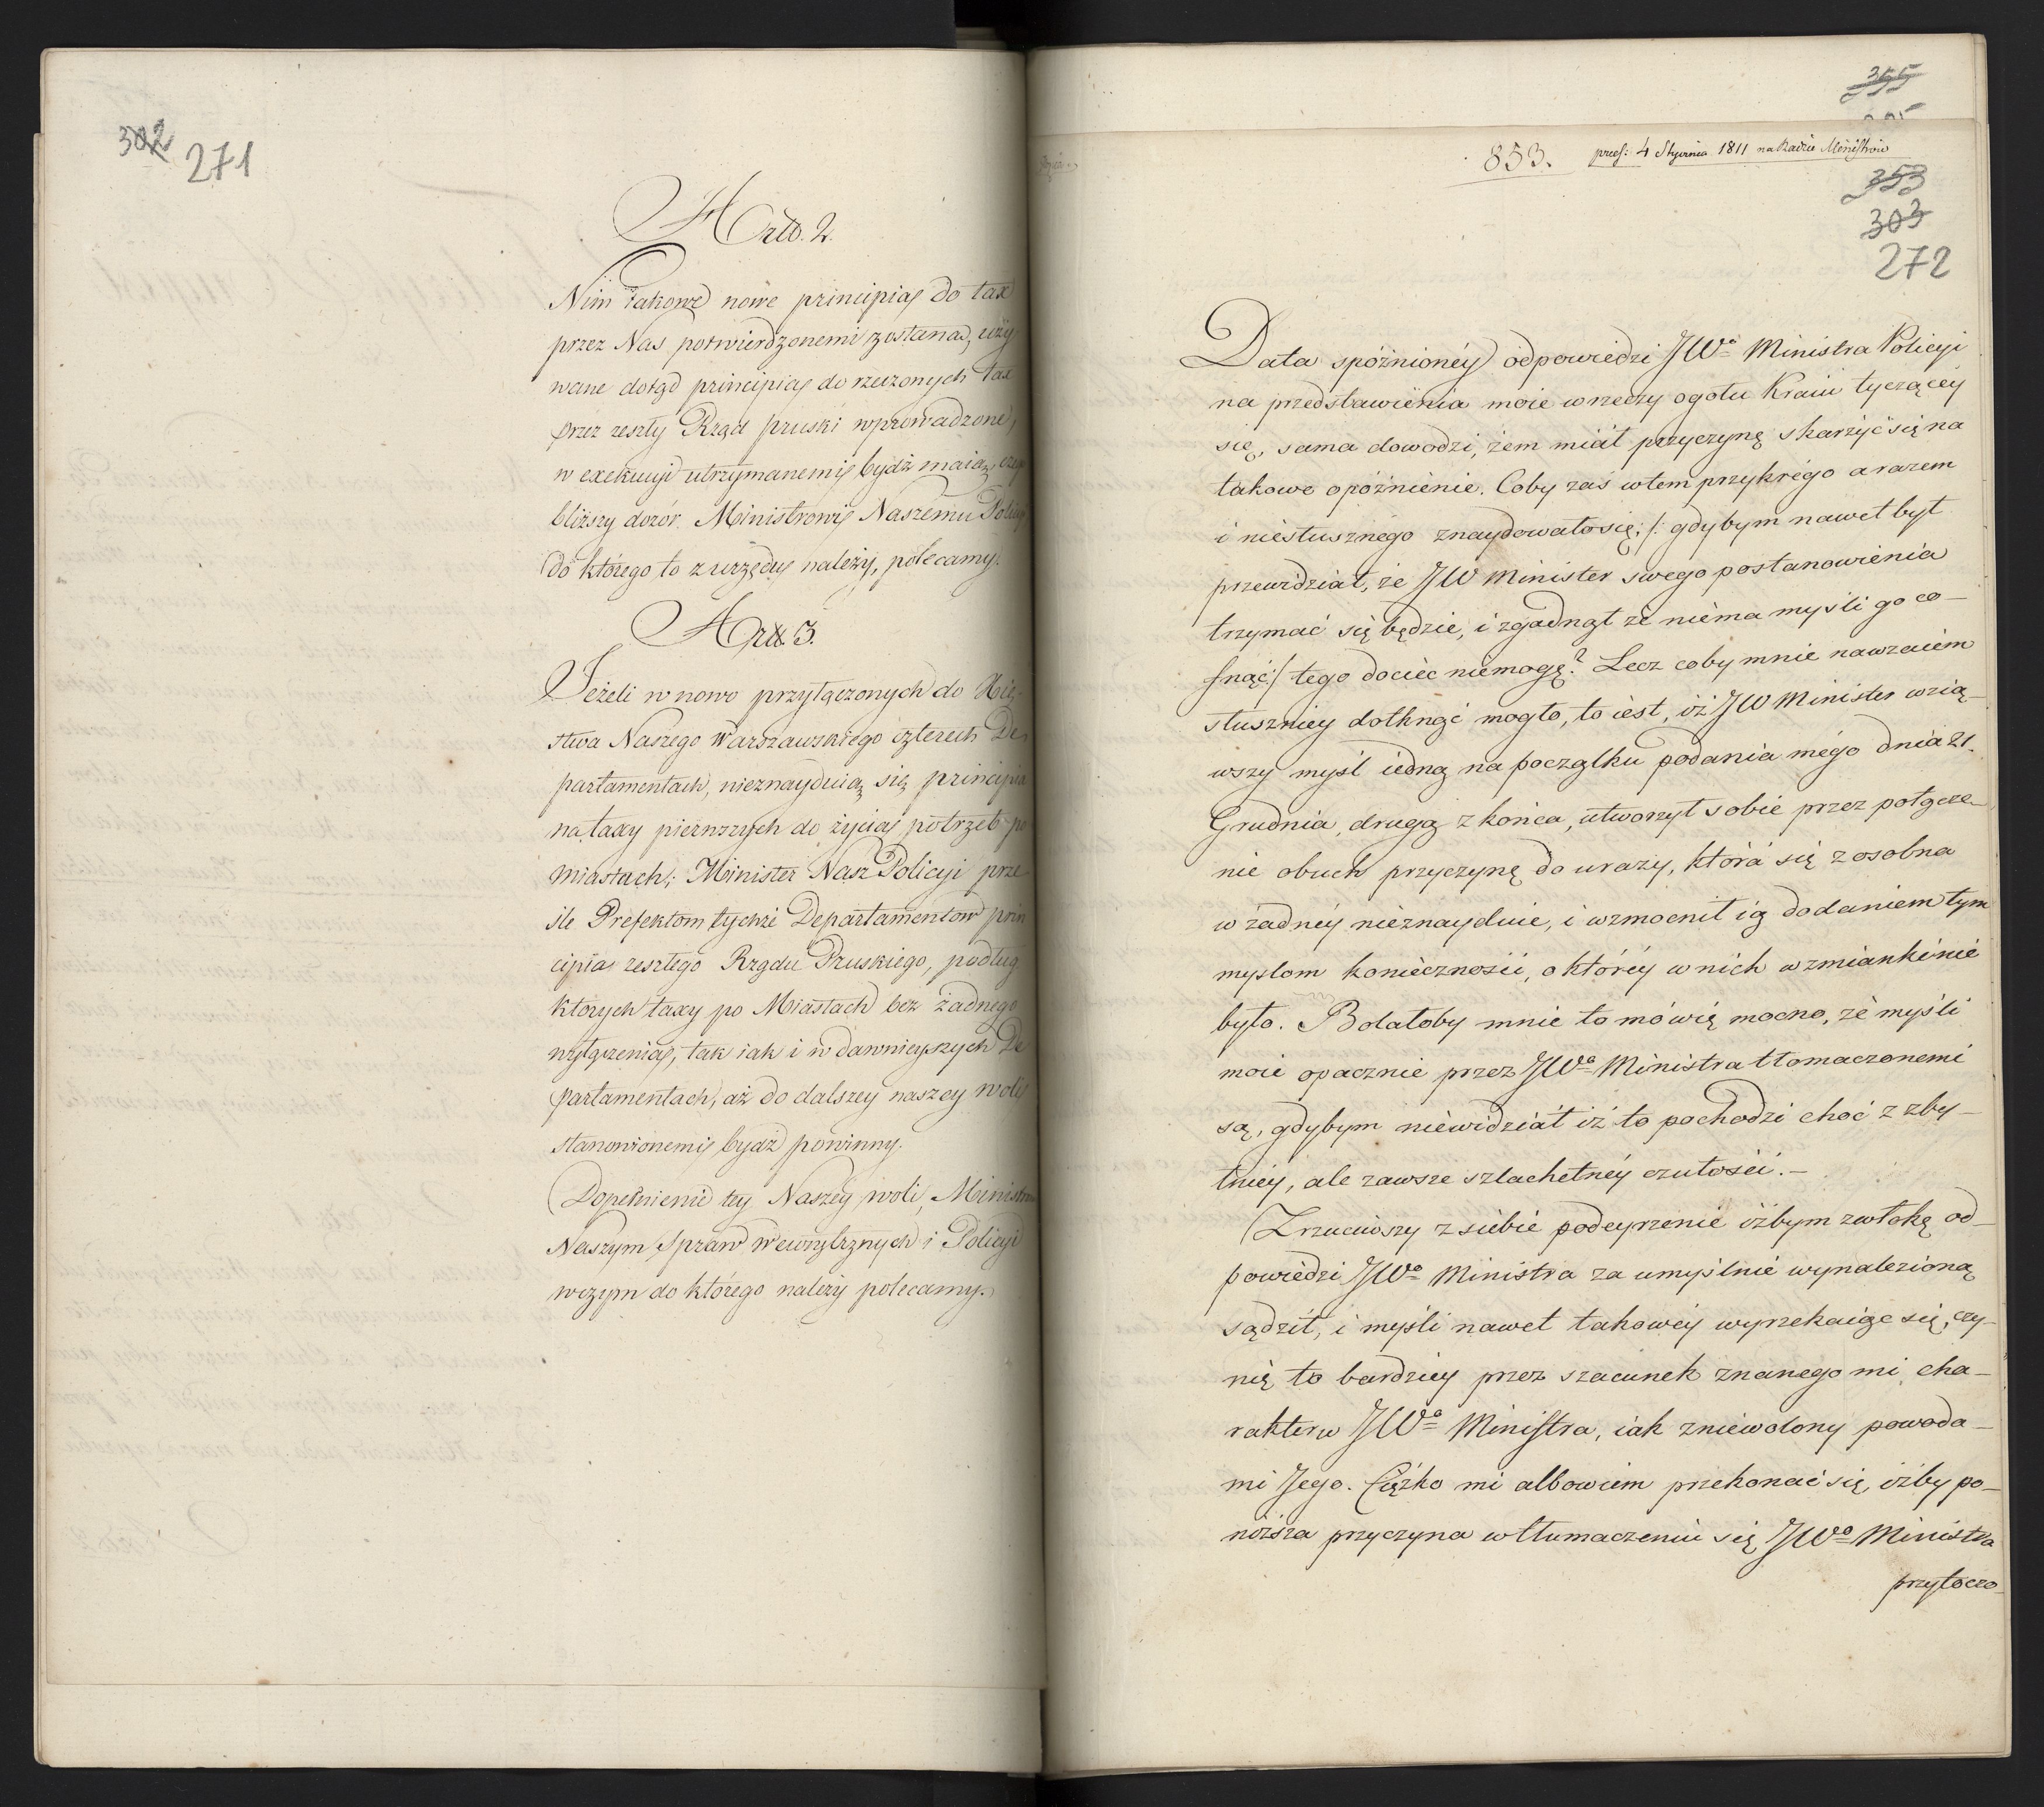 302
271
Art. 2.
Nim takowe nowe principia do tax
przez Nas potwierdzonemi zostaną, uży
wane dotąd principia do rzeczonych tax
przez zeszły Rząd pruski wprowadzone,
w exekucyi utrzymanemi bydź maią, czego
bliższy dozór Ministrowi Naszemu Policyi
do którego to z urzędu należy, polecamy.
Art. 3.
Jeżeli w nowo przyłączonych do Xię-
stwa Naszego Warszawskiego czterech De
partamentach, nieznayduią się principia
na taxy pierwszych do życia potrzeb po
miastach; Minister Nasz Policyi prze
śle Prefektom tychże Departamentów prin
cipia zeszłego Rządu Pruskiego, podług
których taxy po Miastach bez żadnego
wyłączenia, tak iak i w dawnieyszych De
partamentach, aż do dalszey naszey woli
stanowionemi bydź powinny.
Dopełnienie tey Naszey woli, Ministrom
Naszym Spraw Wewnętrznych i Policyi
w czym do którego należy polecamy.
355
853. pres: 4 Stycznia 1811 na Radzie Ministrów
353
303
272
Data spóźnionéy odpowiedzi JWo Ministra Policyi
na przedstawienia moie w rzeczy ogółu Kraiu tyczącéy
się, sama dowodzi, żem miał przyczynę skarżyć się na
takowe opóźnienie. Coby zaś w tem przykrégo a razem
i niesłusznégo znaydowało się; /: gdybym nawet był
przewidział, że JW Minister swego postanowienia
trzymać się będzie, i zgadnął że niema myśli go co-
fnąć:/ tego dociec niemogę? Lecz coby mnie nawzaiem
słuszniey dotknąć mogło, to iest, iż JW Minister wzią-
wszy myśl iedną na początku podania mégo dnia 21.
Grudnia, drugą z końca, utworzył sobie przez połącze-
nie obuch przyczynę do urazy, która się z osobna
w żadnéy nieznayduie, i wzmocnił ią dodaniem tym
myslom konieczności, o któréy w nich wzmianki nie
było. Bolałoby mnie to mówię mocno, że myśli
moie opacznie przez JWo Ministra tłomaczonemi
są, gdybym niewidział iż to pochodzi choć z zby-
tniéy, ale zawsze szlachetnéy czułości.-
Zrzuciwszy z siebie podeyrzenie iżbym zwłokę od-
powiedzi JWo Ministra za umyślnie wynalezioną
sądził, i myśli nawet takowéy wyrzekaiąc się, czy-
nię to bardziey przez szacunek znanego mi cha-
rakteru JWo Ministra, iak zniewolony powoda-
mi Jego. Ciężko mi albowiem przekonać się, iżby po-
niższa przyczyna w tłumaczeniu się JWo Ministra
przytoczo-